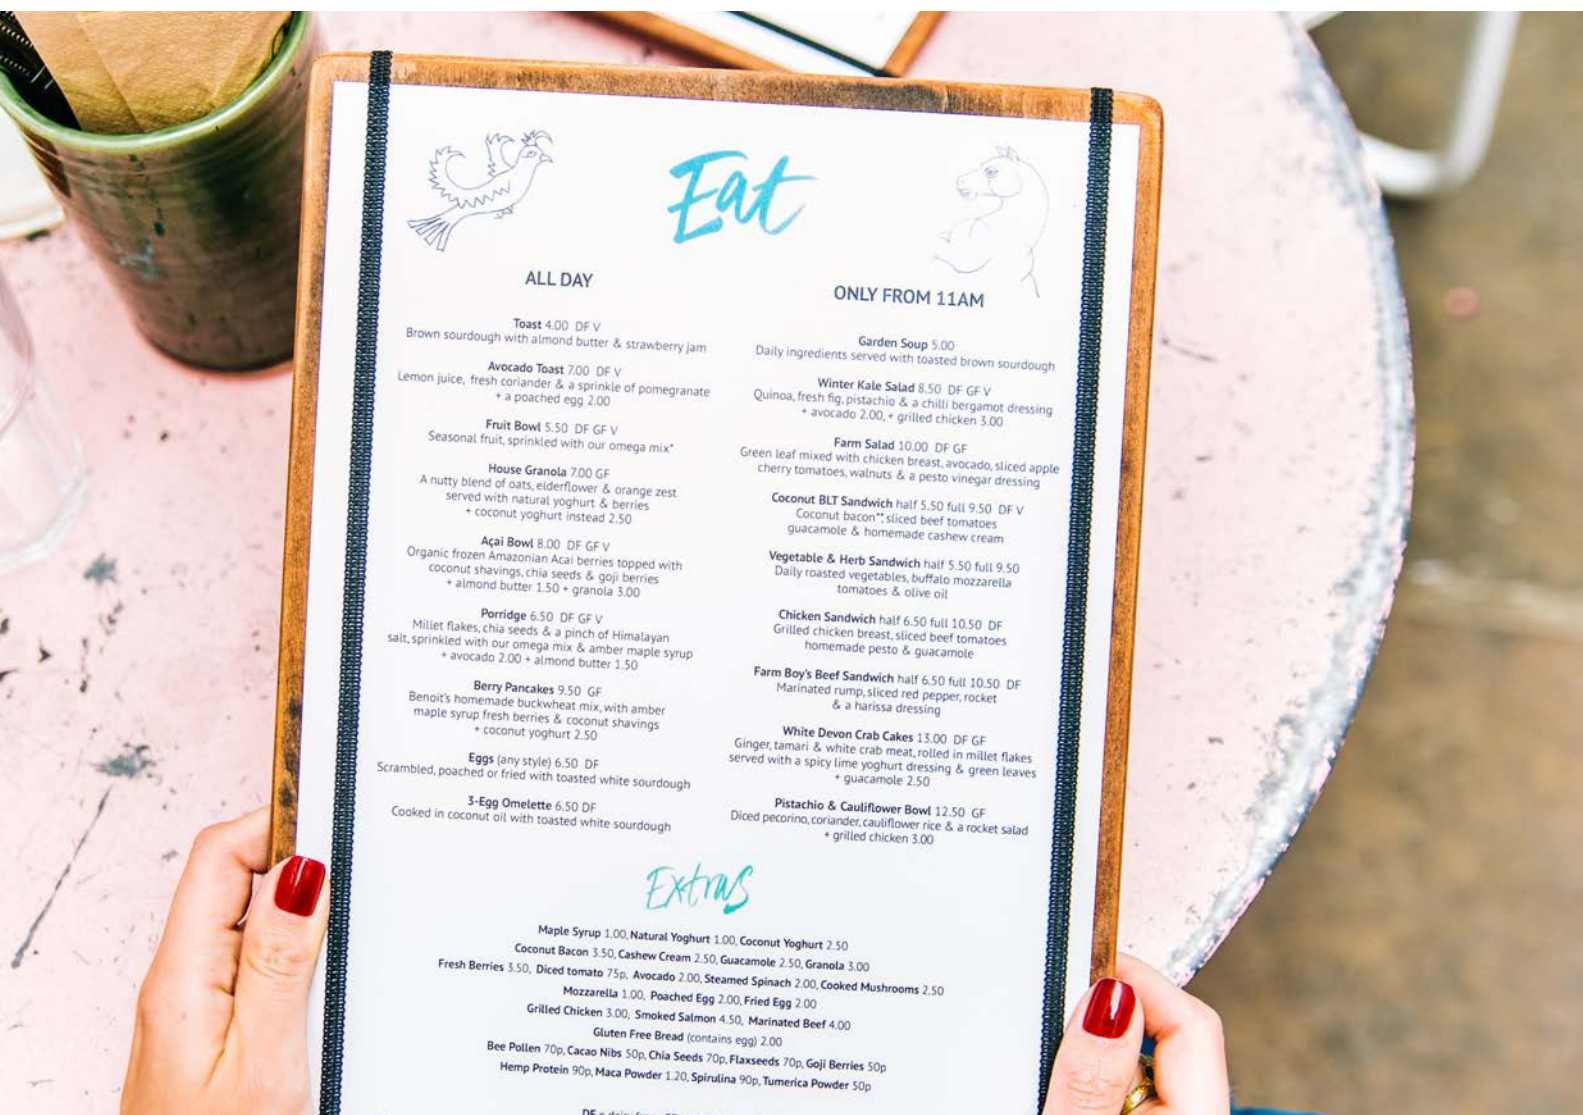 Eat
ALL DAY
Toast 4.00 DF V
Brown sourdough with almond butter & strawberry jam
Avocado Toast 7.00 DF V
Lemon juice, fresh coriander & a sprinkle of pomegranate
+ a poached egg 2.00
Fruit Bowl 5.50 DF GF V
Seasonal fruit, sprinkled with our omega mix*
House Granola 7.00 GF
A nutty blend of oats, elderflower & orange zest
served with natural yoghurt & berries
+ coconut yoghurt instead 2.50
Açai Bowl 8.00 DF GF V
Organic frozen Amazonian Acai berries topped with
coconut shavings, chia seeds & goji berries
+ almond butter 1.50 + granola 3.00
Porridge 6.50 DF GF V
Millet flakes, chia seeds & a pinch of Himalayan
salt, sprinkled with our omega mix & amber maple syrup
+ avocado 2.00 + almond butter 1.50
Berry Pancakes 9.50 GF
Benoit's homemade buckwheat mix, with amber
maple syrup fresh berries & coconut shavings
+ coconut yoghurt 2.50
Eggs (any style) 6.50 DF
Scrambled, poached or fried with toasted white sourdough
3-Egg Omelette 6.50 DF
Cooked in coconut oil with toasted white sourdough
ONLY FROM 11AM
Garden Soup 5.00
Daily ingredients served with toasted brown sourdough
Winter Kale Salad 8.50 DF GF V
Quinoa, fresh fig, pistachio & a chilli bergamot dressing
+ avocado 2.00, + grilled chicken 3.00
Farm Salad 10.00 DF GF
Green leaf mixed with chicken breast, avocado, sliced apple
cherry tomatoes, walnuts & a pesto vinegar dressing
Coconut BLT Sandwich half 5.50 full 9.50 DF V
Coconut bacon**, sliced beef tomatoes
guacamole & homemade cashew cream
Vegetable & Herb Sandwich half 5.50 full 9.50
Daily roasted vegetables, buffalo mozzarella
tomatoes & olive oil
Chicken Sandwich half 6.50 full 10.50 DF
Grilled chicken breast, sliced beef tomatoes
homemade pesto & guacamole
Farm Boy's Beef Sandwich half 6.50 full 10.50 DF
Marinated rump, sliced red pepper, rocket
& a harissa dressing
White Devon Crab Cakes 13.00 DF GF
Ginger, tamari & white crab meat, rolled in millet flakes
served with a spicy lime yoghurt dressing & green leaves
+ guacamole 2.50
Pistachio & Cauliflower Bowl 12.50 GF
Diced pecorino, coriander, cauliflower rice & a rocket salad
+ grilled chicken 3.00
Extras
Maple Syrup 1.00, Natural Yoghurt 1.00, Coconut Yoghurt 2.50
Coconut Bacon 3.50, Cashew Cream 2.50, Guacamole 2.50, Granola 3.00
Fresh Berries 3.50, Diced tomato 75p, Avocado 2.00, Steamed Spinach 2.00, Cooked Mushrooms 2.50
Mozzarella 1.00, Poached Egg 2.00, Fried Egg 2.00
Grilled Chicken 3.00, Smoked Salmon 4.50, Marinated Beef 4.00
Gluten Free Bread (contains egg) 2.00
Bee Pollen 70p, Cacao Nibs 50p, Chia Seeds 70p, Flaxseeds 70p, Goji Berries 50p
Hemp Protein 90p, Maca Powder 1.20, Spirulina 90p, Tumerica Powder 50p
DF =